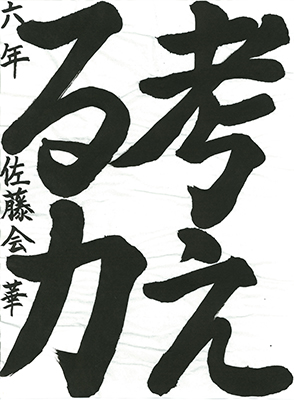 考え
る力
六年 佐藤会華